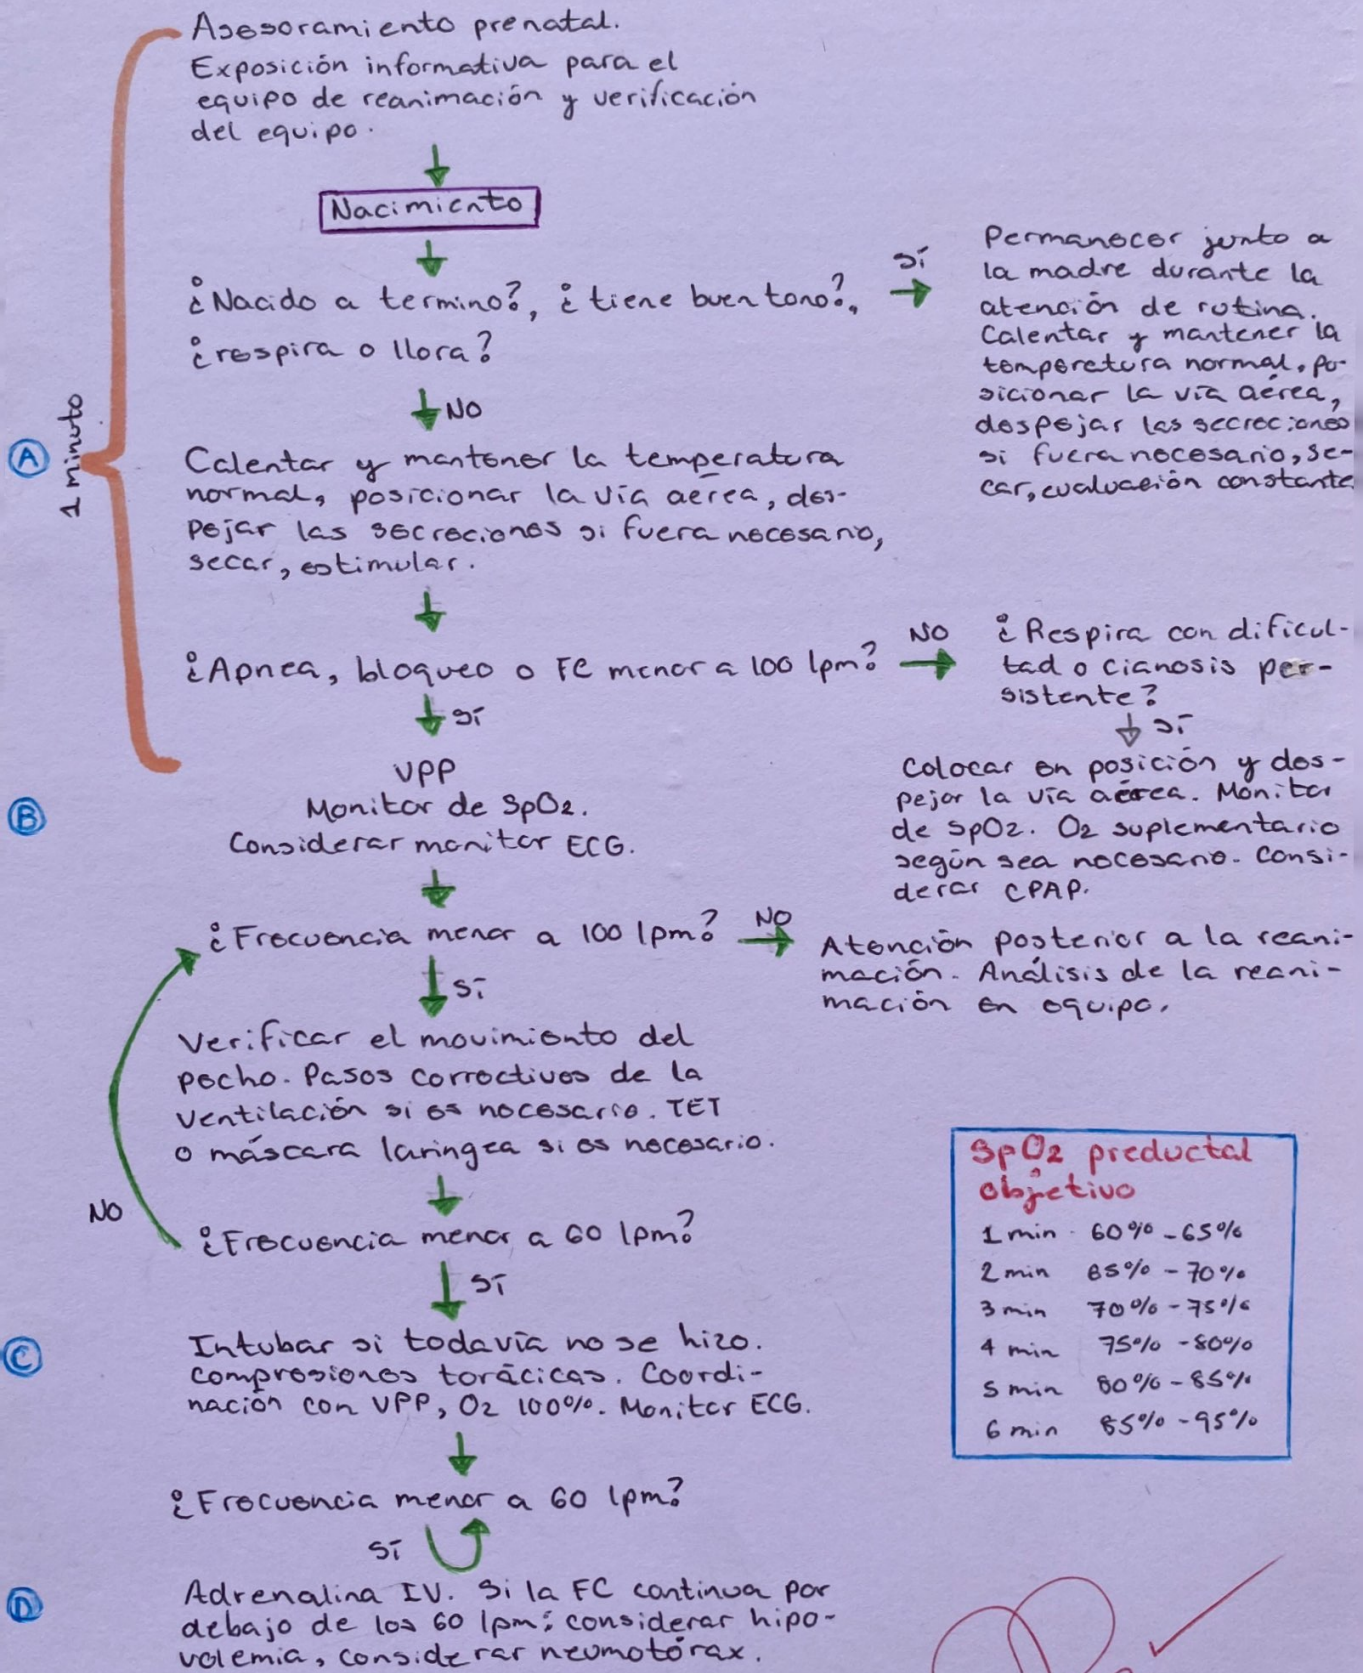 Asesoramiento prenatal.
Exposición informativa para el
equipo de reanimación y verificación
del equipo.
Nacimiento
¿Nacido a termino?, ¿tiene buen tono?,
¿respira o llora?
SÍ
Permanecer junto a
la madre durante la
atención de rutina.
Calentar y mantener la
temperatura normal, po-
sicionar la vía aérea,
despejar las secreciones
si fuera necesario, se-
car, evaluación constante
NO
A
1 minuto
Calentar y mantener la temperatura
normal, posicionar la vía aérea, des-
pejar las secreciones si fuera necesario,
secar, estimular.
¿Apnea, bloqueo o FC menor a 100 lpm?
NO
¿Respira con dificul-
tad o cianosis per-
sistente?
SÍ
Colocar en posición y des-
pejar la vía aérea. Monitor
de SpO2. O2 suplementario
según sea necesario. Consi-
derar CPAP.
SÍ
B
VPP
Monitor de SpO2.
Considerar monitor ECG.
¿Frecuencia menor a 100 lpm?
NO
Atención posterior a la reani-
mación. Análisis de la reani-
mación en equipo.
SÍ
Verificar el movimiento del
pecho. Pasos correctivos de la
ventilación si es necesario. TET
o máscara laringea si es necesario.
NO
¿Frecuencia menor a 60 lpm?
SÍ
C
Intubar si todavía no se hizo.
compresiones torácicas. Coordi-
nación con VPP, O2 100%. Monitor ECG.
¿Frecuencia menor a 60 lpm?
SÍ
D
Adrenalina IV. Si la FC continua por
debajo de los 60 lpm: considerar hipo-
volemia, considerar neumotórax.
SpO2 preductal
objetivo
1 min 60% - 65%
2 min 65% - 70%
3 min 70% - 75%
4 min 75% - 80%
5 min 80% - 85%
6 min 85% - 95%